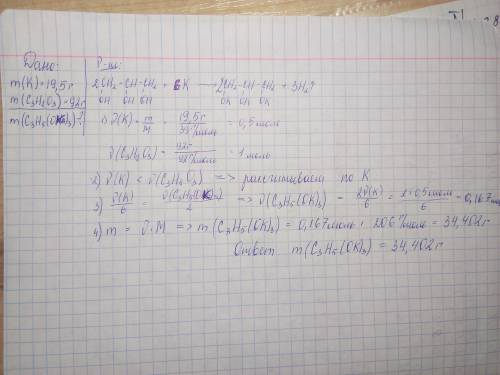 Дано:
m(K) = 19,5 г
m(C3H8O3) = 92 г
m(C3H5(OK)3)-?
Р-ие:
2CH2-CH-CH2 + 6K → 2CH2-CH-CH2 + 3H2↑
OH OH OH OK OK OK
1) ν(K) = m/M = 19,5 г/39 г/моль = 0,5 моль
ν(C3H8O3) = 92 г/92 г/моль = 1 моль
2) ν(K) < ν(C3H8O3) => рассчитываем по K
3) ν(K)/6 = ν(C3H5(OK)3)/2 => ν(C3H5(OK)3) = 2ν(K)/6 = 2·0,5 моль/6 = 0,167 моль
4) m = ν·M => m(C3H5(OK)3) = 0,167 моль · 206 г/моль = 34,402 г
Ответ: m(C3H5(OK)3) = 34,402 г